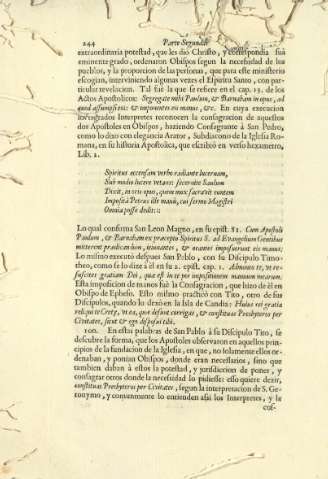 244 Parte Segunda
extraordinaria potestad, que les diò Christo, y correspondia su
eminente grado, ordenaron Obispos segun la necesidad de los
pueblos, y la proporcion de las personas, que para este ministerio
escogian, interviniendo algunas vezes el Espiritu Santo, con par-
ticular revelacion. Tal fuè la que se refiere en el cap. 13. de los
Actos Apostolicos: Segregate mihi Paulum, & Barnabam in opus, ad
quod assumpsi eos: & imponentes manus, &c. En cuya execucion
los sagrados Interpretes reconocen la consagracion de aquestos
dos Apostoles en Obispos, haziendo Consagrante à San Pedro,
como lo dixo con elegancia Arator, Subdiacono de la Iglesia Ro-
mana, en su historia Apostolica, que escribiò en verso hexametro,
Lib. 2.
Spiritus accensam verbo radiante lucernam,
Sub modio lucere vetans: secernite Saulum
Dixit, in
Impositâ Petrus illi manû, cui sermo Magistri
Omnia posse dedit:
Lo qual conforma San Leon Magno, en su epist. 81. Cum Apostoli
Paulum, & Barnabam ex præcepto Spiritus S. ad Evangelium Gentibus
mitterent prædicandum, ieiunantes, & orantes imposuerunt eis manus:
Lo mismo executò despues San Pablo, con su Discipulo Timo-
theo, como se lo dize à èl en la 2. epist. cap. 1. Admoneo te, ut re-
suscites gratiam Dei, quæ est in te per impositionem manuum mearum:
Esta imposicion de manos fuè la Consagracion, que hizo de èl en
Obispo de Epheso. Esto mismo practicò con Tito, otro de sus
Discipulos, quando lo dexò en la Isla de Candia: Huius rei gratia
reliqui te Cretæ, ut ea, quæ desunt corrigas, & constituas Presbyteros per
Civitates, sicut & ego disposui tibi.
100. En estas palabras de San Pablo à su Discipulo Tito, se
descubre la forma, que los Apostoles observaron en aquellos prin-
cipios de la fundacion de la Iglesia, en que, no solamente ellos or-
denaban, y ponian Obispos, donde eran necesarios, sino que
tambien daban à estos la potestad, y jurisdicion de poner, y
consagrar otros donde la necesidad lo pidiesse: esso quiere dezir,
constituas Presbyteros per Civitates, segun la interpretacion de S. Ge-
ronymo, y comunmente lo entienden assi los Interpretes, y la
cos-